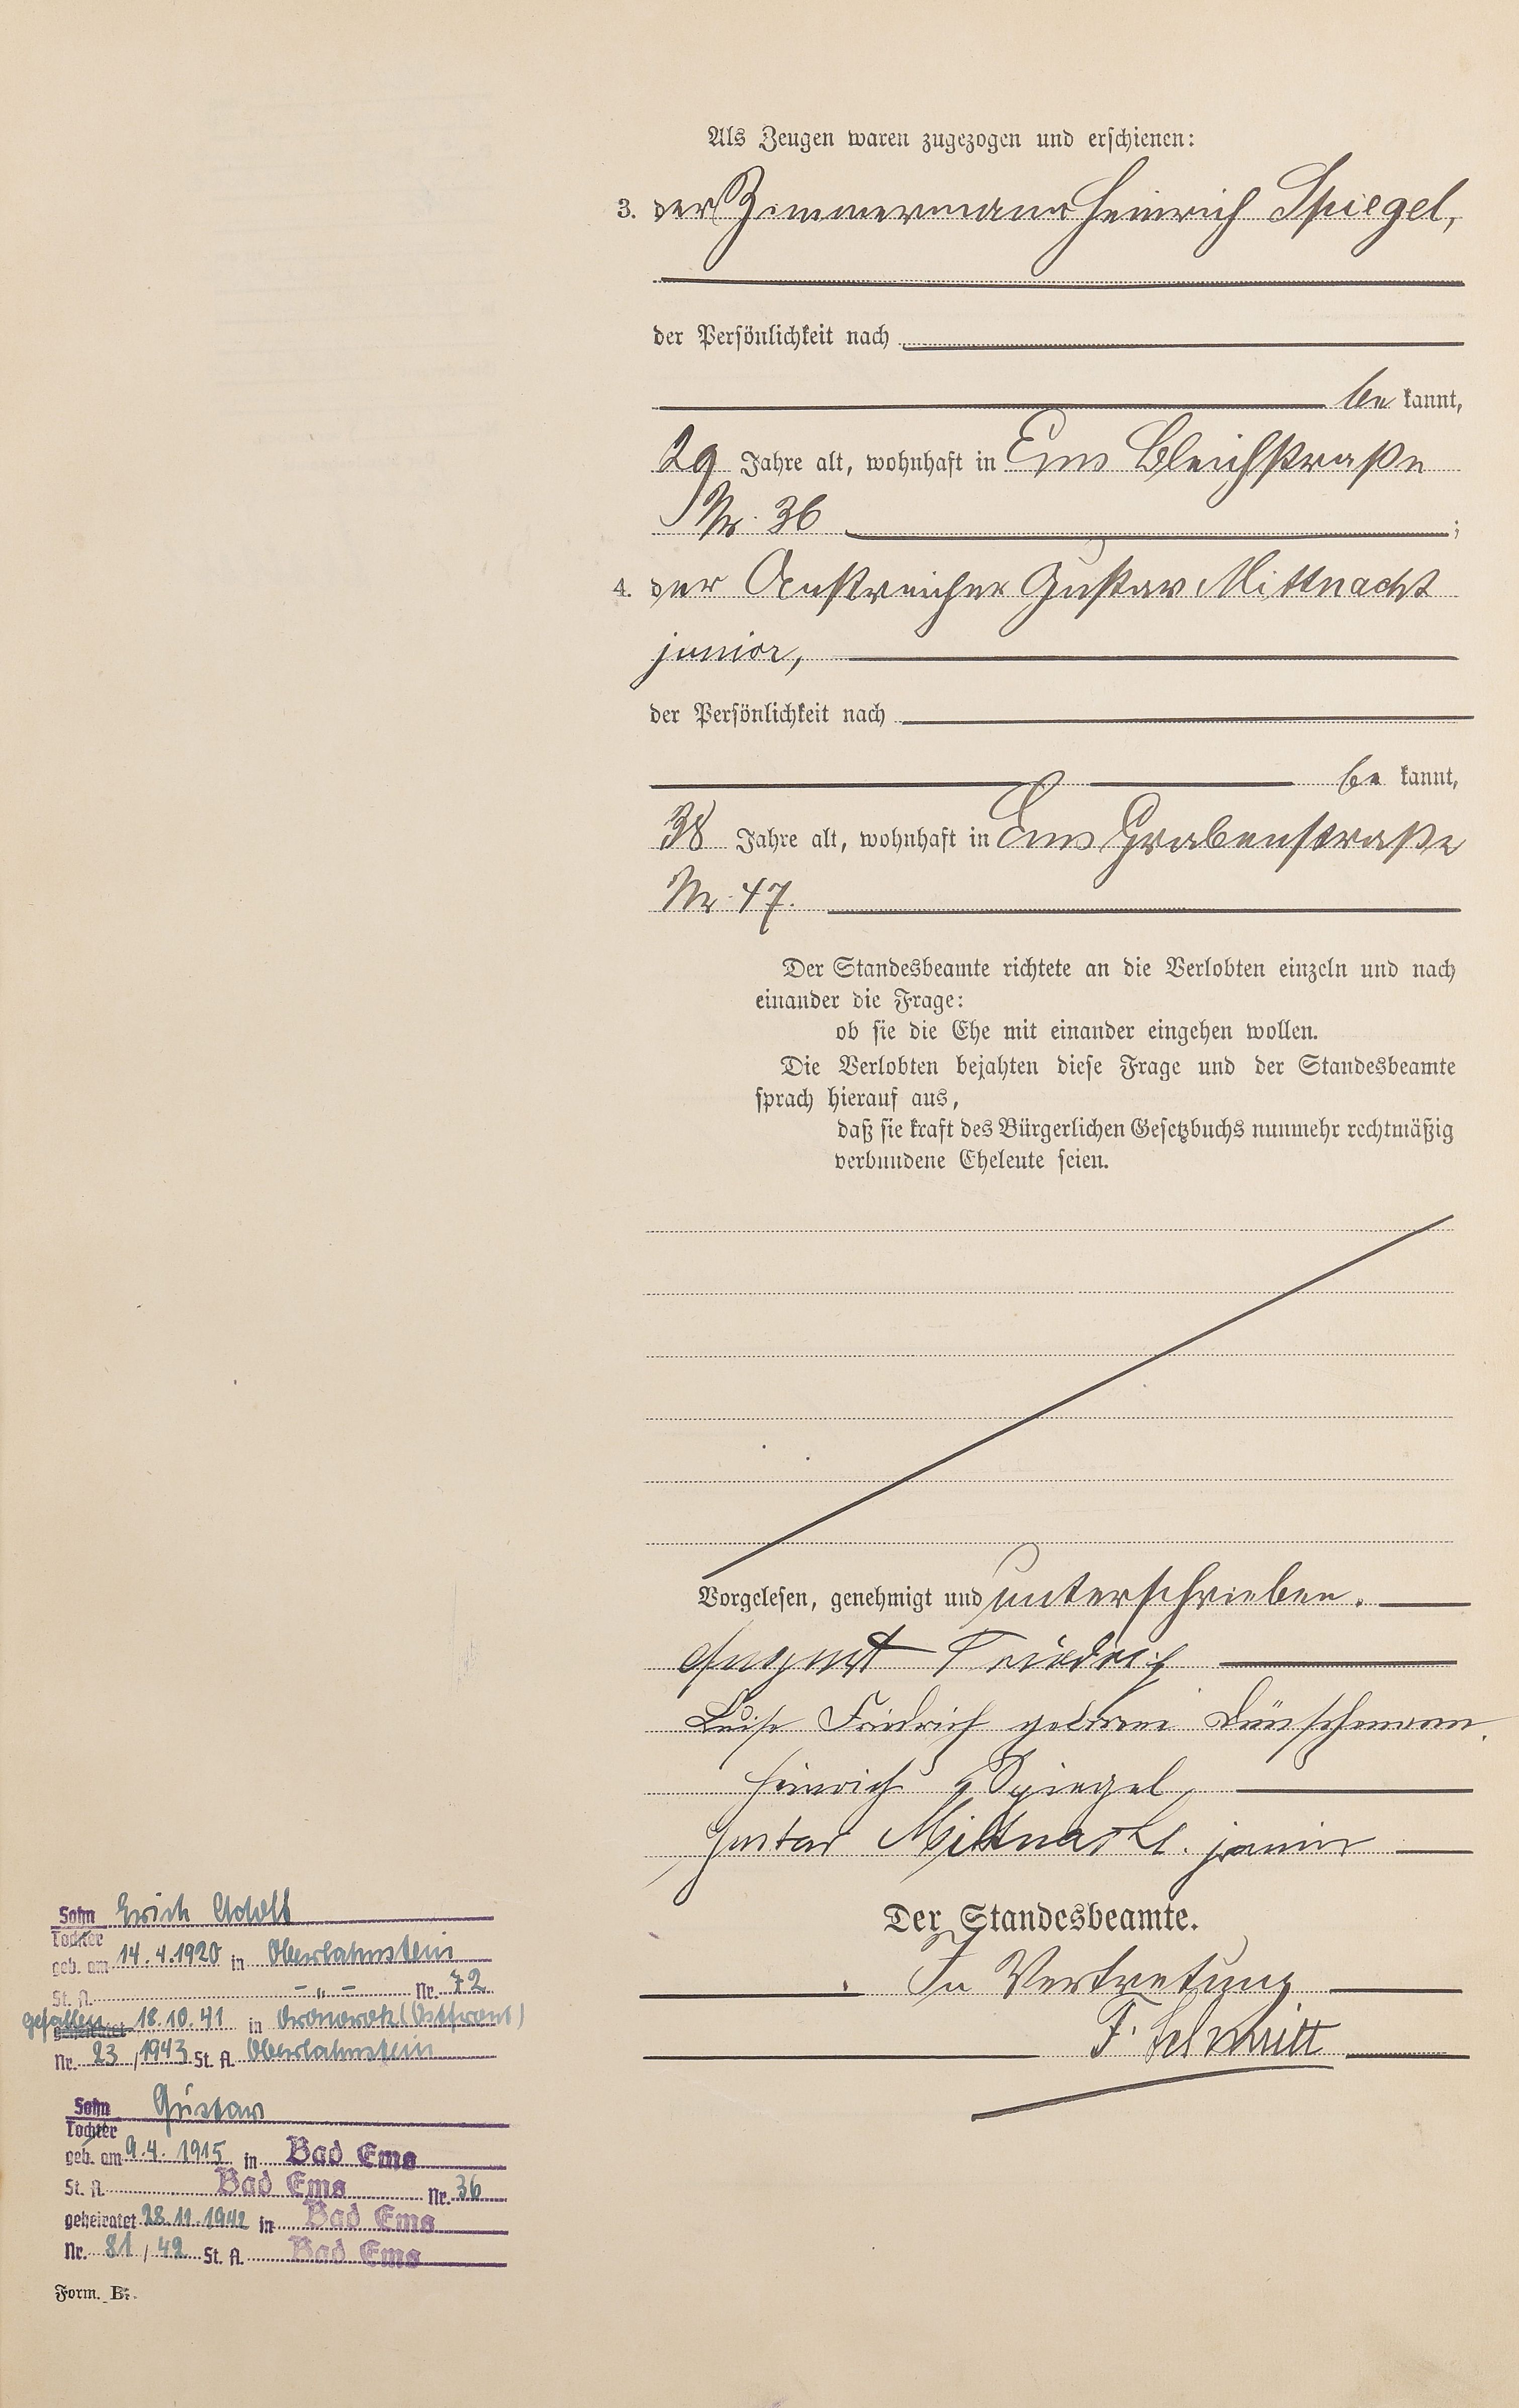 Als Zeugen waren zugezogen und erschienen:
3. der Zimmermann Heinrich Spiegel,
der Persönlichkeit nach
be kannt,
29 Jahre alt, wohnhaft in Ems Bleichstraße
Nr. 36 ;
4. der Anstreicher Gustav Mittnacht
junior,
der Persönlichkeit nach
be kannt,
38 Jahre alt, wohnhaft in Ems Grabenstraße
Nr. 47.
Der Standesbeamte richtete an die Verlobten einzeln und nach
einander die Frage:
ob sie die Ehe mit einander eingehen wollen.
Die Verlobten bejahten diese Frage und der Standesbeamte
sprach hierauf aus,
daß sie kraft des Bürgerlichen Gesetzbuchs nunmehr rechtmäßig
verbundene Eheleute seien.
Vorgelesen, genehmigt und unterschrieben.
August Friedrich
Luise Friedrich geborene Dünschmann.
Heinrich Spiegel
Gustav Mittnacht. junior
Der Standesbeamte.
In Vertretung
F. Schmitt
Sohn Erich Adolf
Tochter
geb. am 14.4.1920 in Oberlahnstein
St. A. – " – Nr. 72
gefallen geheiratet 18.10.41 in (Ostfront)
Nr. 23 / 1943 St. A. Oberlahnstein
Sohn Gustav
Tochter
geb. am 9.4.1915 in Bad Ems
St. A. Bad Ems Nr. 36
geheiratet 28.11.1942 in Bad Ems
Nr. 81 / 42 St. A. Bad Ems
Form. B.